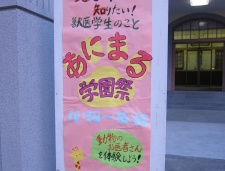 知りたい!
獣医学生のこと
あにまる
学園祭
動物の
お医者さん
を体験しよう!